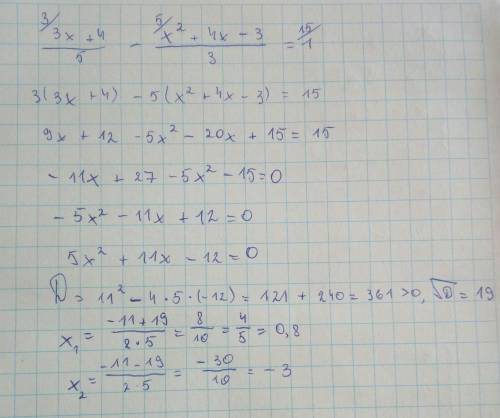 ³⁄ (3x + 4)/5 - ⁵⁄ (x² + 4x - 3)/3 = ¹⁵⁄ 1
3(3x + 4) - 5(x² + 4x - 3) = 15
9x + 12 - 5x² - 20x + 15 = 15
- 11x + 27 - 5x² - 15 = 0
- 5x² - 11x + 12 = 0
5x² + 11x - 12 = 0
D = 11² - 4 · 5 · (-12) = 121 + 240 = 361 > 0, √D = 19
x₁ = (-11 + 19)/(2 · 5) = 8/10 = 4/5 = 0,8
x₂ = (-11 - 19)/(2 · 5) = -30/10 = - 3